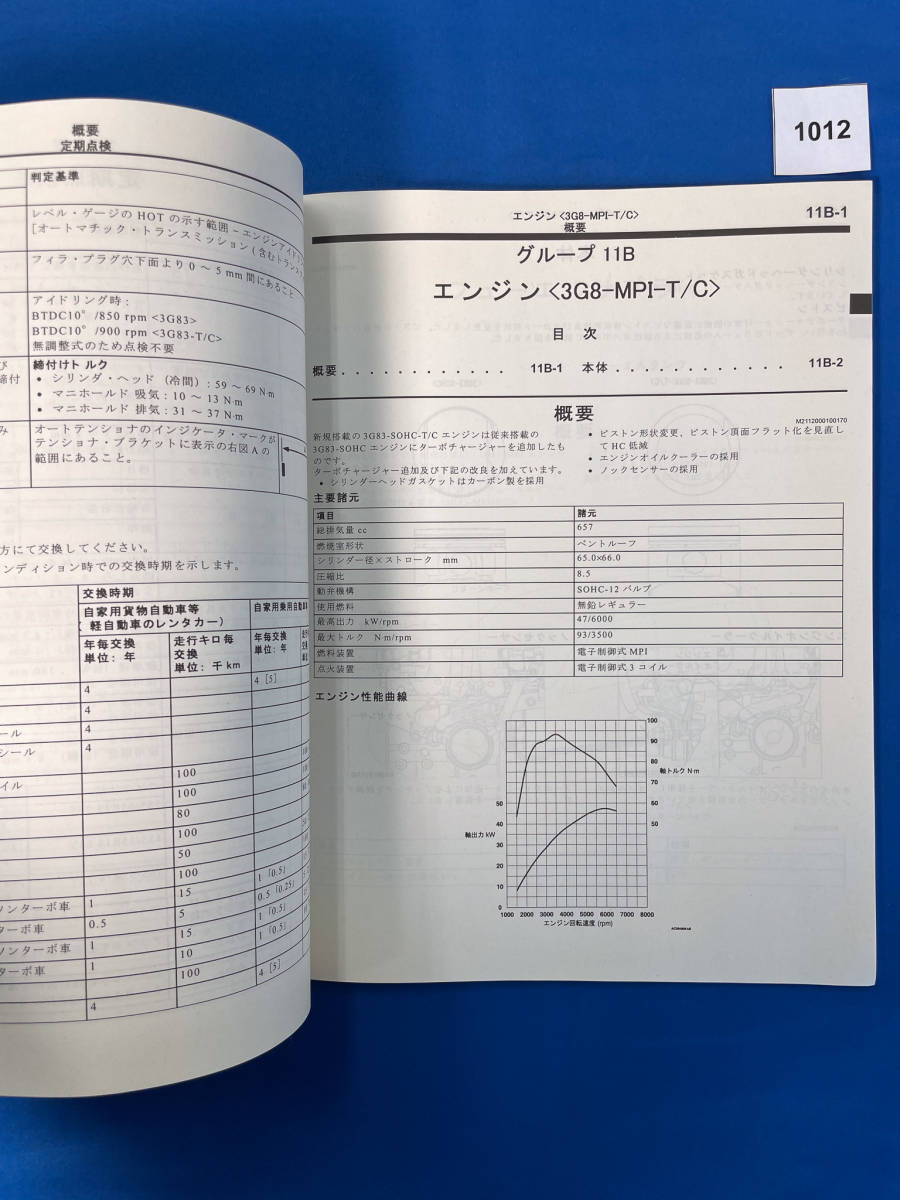 1012
概要
定期点検
判定基準
レベル・ゲージの HOT の示す範囲－エンジンアイド
[オートマチック・トランスミッション (含むトランス
フィラ・プラグ穴下面より 0 ～ 5 mm 間にあること
アイドリング時：
BTDC10°/850 rpm <3G83>
BTDC10°/900 rpm <3G83-T/C>
無調整式のため点検不要
び
締付
締付けトルク
• シリンダ・ヘッド（冷間）: 59 ～ 69 N·m
• マニホールド 吸気 : 10 ～ 13 N·m
• マニホールド 排気 : 31 ～ 37 N·m
み
オートテンショナのインジケータ・マークが
テンショナ・ブラケットに表示の右図 A の
範囲にあること。
方にて交換してください。
ンディション時での交換時期を示します。
交換時期
自家用貨物自動車等
( 軽自動車のレンタカー)
自家用乗用自動車
年毎交換
単位：年
走行キロ毎
交換
単位：千 km
年毎交換
単位：年
4
4 [5]
4
ール
4
シール
4
イル
100
100
80
100
50
100
ノンターボ車
1
15
1「0.5」
ターボ車
0.5
5
0.5「0.25」
ノンターボ車
1
15
1「0.5」
ターボ車
1
10
1「0.5」
100
4 [5]
4
エンジン <3G8-MPI-T/C>
概要
11B-1
グループ 11B
エンジン <3G8-MPI-T/C>
目 次
概要 . . . . . . . . . . . . . . 11B-1
本体 . . . . . . . . . . . . . . 11B-2
概要
M2112000100170
新規搭載の 3G83-SOHC-T/C エンジンは従来搭載の
3G83-SOHC エンジンにターボチャージャーを追加したも
のです。
ターボチャージャー追加及び下記の改良を加えています。
• シリンダーヘッドガスケットはカーボン製を採用
• ピストン形状変更、ピストン頂面フラット化を見直し
て HC 低減
• エンジンオイルクーラーの採用
• ノックセンサーの採用
主要諸元
項目 諸元
総排気量 cc 657
燃焼室形状 ペントルーフ
シリンダー径×ストローク mm 65.0×66.0
圧縮比 8.5
動弁機構 SOHC-12 バルブ
使用燃料 無鉛レギュラー
最高出力 kW/rpm 47/6000
最大トルク N·m/rpm 93/3500
燃料装置 電子制御式 MPI
点火装置 電子制御式 3 コイル
エンジン性能曲線
100
90
80
70
60
50
軸トルク N·m
50
40
30
20
10
0
軸出力 kW
1000 2000 3000 4000 5000 6000 7000 8000
エンジン回転速度 (rpm)